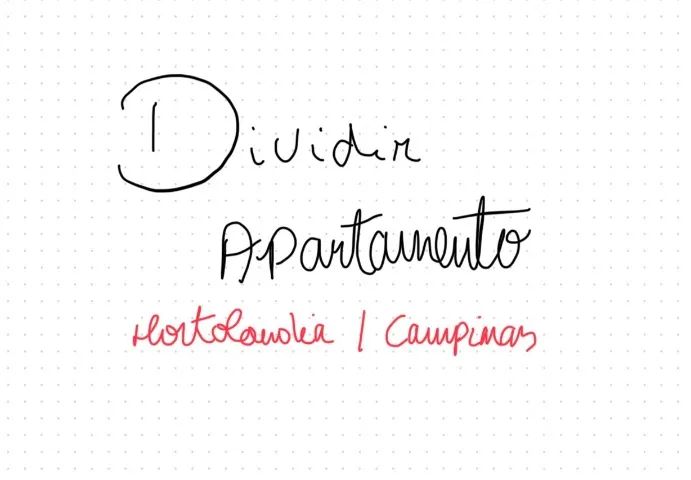 Dividir
Apartamento
Hortolandia / Campinas